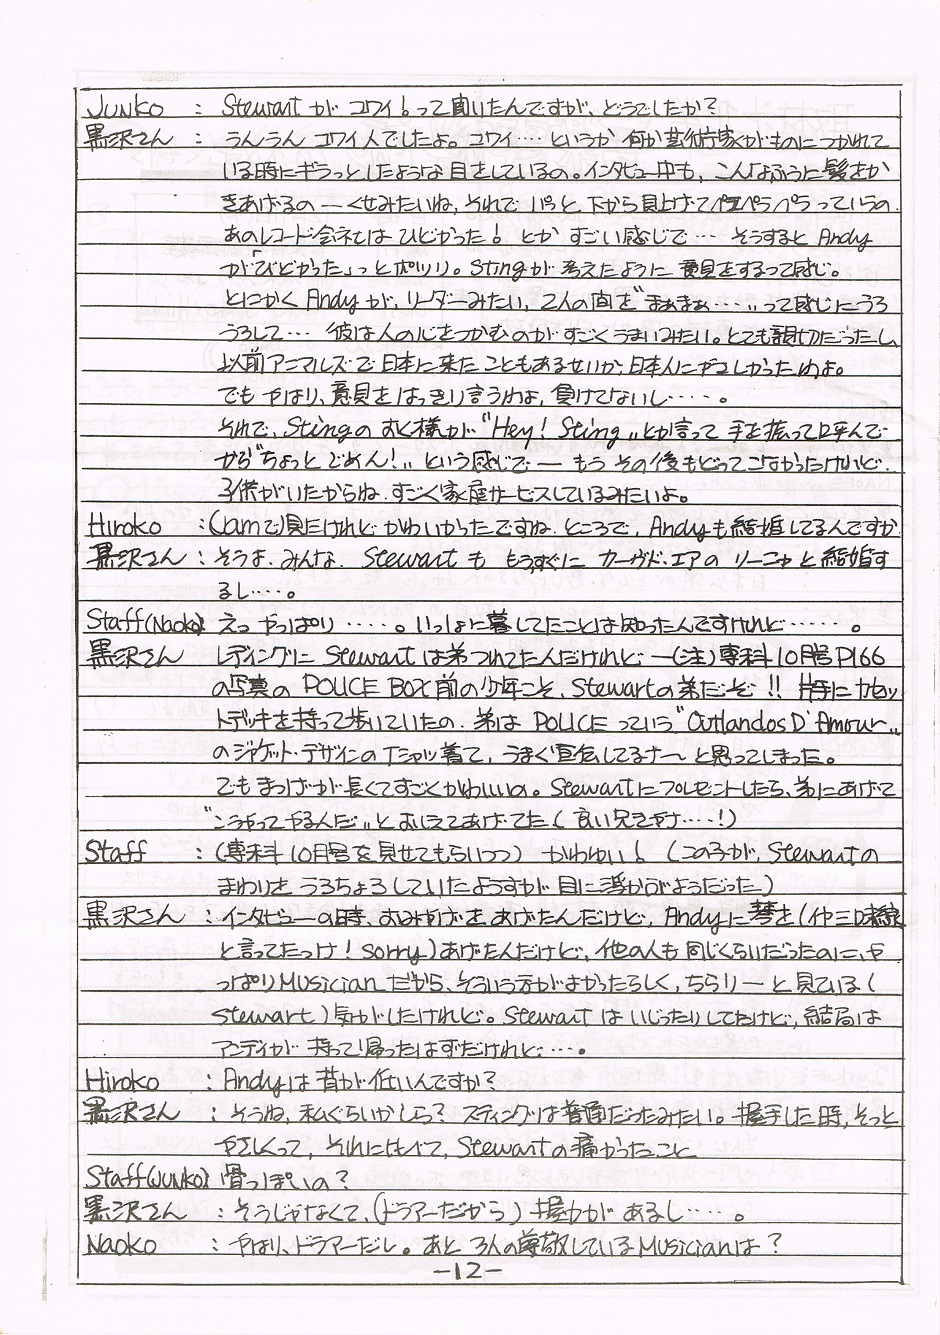 JUNKO : Stewartがコワイ!って聞いたんですが、どうでしたか?
黒沢さん : うんうん コワイ人でしたよ。コワイ…というか 何か芸術家がものにつかれて
いる時にギラっとしたような目をしているの。インタビュー中も、こんなふうに髪をか
きあげるの — くせみたいね、それで 下から見上げて ペラペラっていうの。
あのレコード会社は ひどかった! とか すごい感じで… そうすると Andy
が「ひどかった」っとポツリ。Stingが考えたように意見をするって感じ。
とにかくAndyが、リーダーみたい、2人の間を"まぁまぁ……"って感じにうろ
うろして… 彼は人の心をつかむのがすごくうまいみたい。とても親切だったし、
以前アニマルズで日本に来たこともあるせいか、日本人にやさしかったわよ。
でもやはり、意見をはっきり言うわよ、負けてないし……。
それで、Stingのおく様が"Hey! Sting"とか言って手を振って呼んで
から"ちょっとごめん!"という感じで — もうその後もどってこなかったけれど、
子供がいたからね、すごく家庭サービスしているみたいよ。
Hiroko : (Jamで)見たけれど かわいかったですね、ところで、Andyも結婚してるんですか
黒沢さん : そうよ、みんな、Stewartも もうすぐに カーヴド・エアの ソーニャと結婚す
るし……。
Staff(Naoko): えっ やっぱり ……。いっしょに暮してたことは知ったんですけれど……。
黒沢さん レディングに Stewartは弟つれてたんだけれど —(注)専科10月号P166
の写真の POLICE BOX前の少年こそ、Stewartの弟だぞ!! 片手にカセッ
トデッキを持って歩いていたの、弟は POLICEっていう"Outlandos D'Amour"
のジャケット・デザインのTシャツ着て、うまく宣伝してるナ〜と思ってしまった。
でもまつげが長くてすごくかわいいの。Stewartにプレゼントしたら、弟にあげて
"こうやってやるんだ"とおしえてあげてた(良い兄きやナ……!)
Staff : (専科10月号を見せてもらいつつ) かわゆい! (この子が、Stewartの
まわりを うろちょろしていたようすが 目に浮かぶようだった)
黒沢さん : インタビューの時、おみやげをあげたんだけど、Andyに琴を(イヤ三味線
と言ってたっけ! Sorry)あげたんだけど、他の人も同じくらいだったのに、や
っぱりMusicianだから、そういう方がよかったらしく、ちらりーと見ている(
Stewart)気がしたけれど。Stewartはいじったりしてたけど、結局は
アンディが 持って帰ったはずだけれど…。
Hiroko : Andyは背が低いんですか?
黒沢さん : そうね、私ぐらいかしら? スティングは普通だったみたい。握手した時、そっと
やさしくって、それにくらべて、Stewartの痛かったこと
Staff(JUNKO): 骨っぽいの?
黒沢さん : そうじゃなくて、(ドラマーだから) 握力があるし……。
Naoko : やはり、ドラマーだし。あと 3人の尊敬しているMusicianは?
-12-